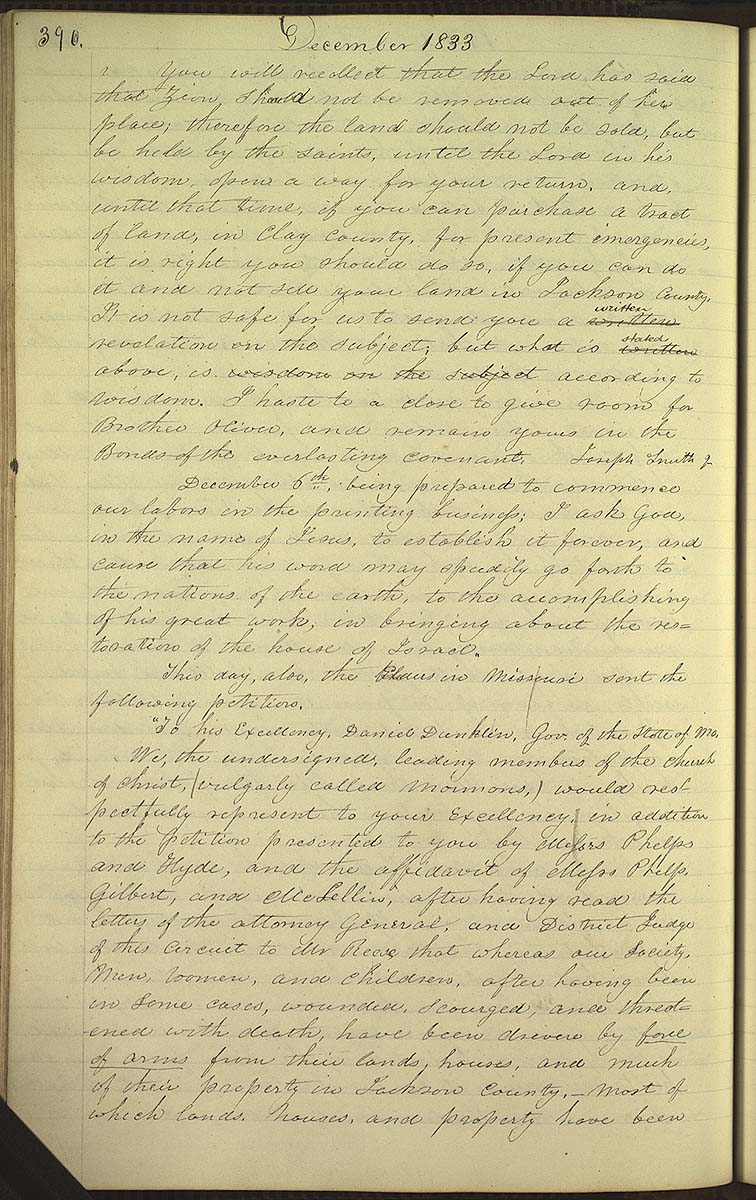 390.
December 1833
you will recollect that the Lord has said
that Zion, should not be removed out of her
place; therefore the land should not be sold, but
be held by the saints, until the Lord in his
wisdom, open a way for your return, and,
until that time, if you can purchase a tract
of land, in Clay County, for present emergencies,
it is right you should do so, if you can do
it and not sell your land in Jackson County,
It is not safe for us to send you a written written
revelation on the subject; but what is stated written
above, is wisdom on the subject according to
wisdom. I haste to a close to give room for
Brother Oliver, and remain yours in the
Bonds of the everlasting covenant. Joseph Smith Jr
December 6th, being prepared to commence
our labors in the printing business; I ask God,
in the name of Jesus, to establish it forever, and
cause that his word may speedily go forth to
the nations of the earth, to the accomplishing
of his great work, in bringing about the res=
toration of the house of Israel.
This day, also, the Elders in Missouri sent the
following petition.
"To his Excellency, Daniel Dunklin, Gov. of the State of Mo.
We, the undersigned, leading members of the church
of Christ, (vulgarly called Mormons,) would res-
pectfully represent to your Excellency, in addition
to the petition presented to you by Messrs Phelps
and Hyde, and the affidavit of Messrs Phelps,
Gilbert, and McLellin, after having read the
letters of the attorney General, and District Judge
of this circuit to Mr Reese that whereas our Society,
Men, women, and children, after having been
in some cases, wounded, scourged, and threat=
ened with death, have been driven by force
of arms from their lands, houses, and much
of their property in Jackson County,— most of
which lands, houses, and property have been